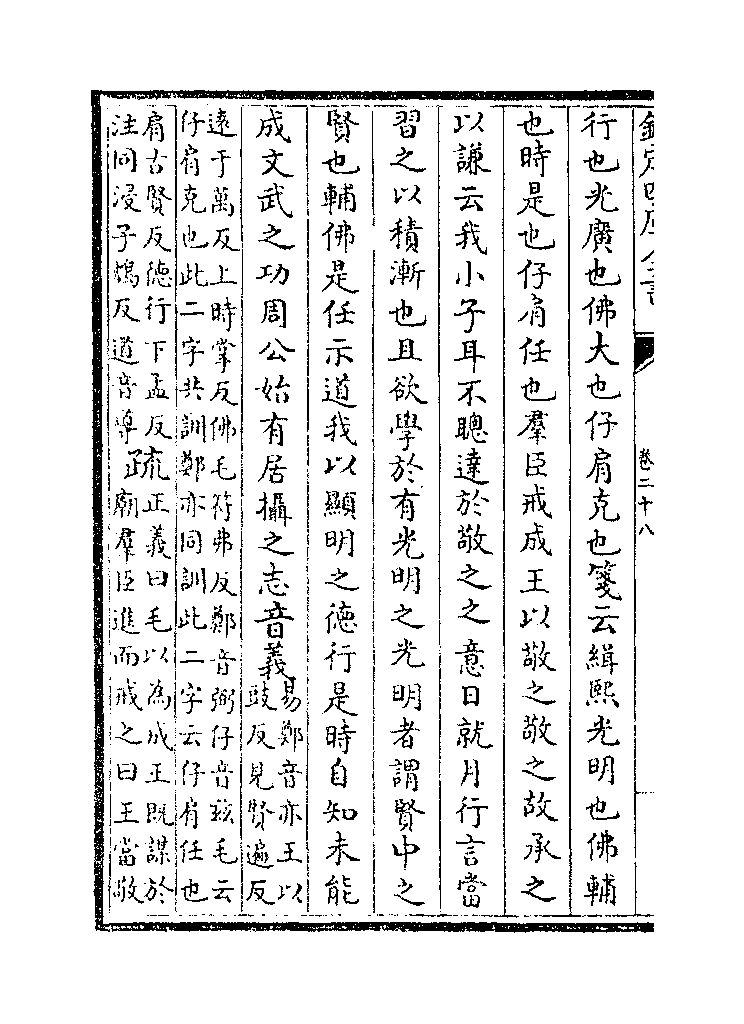 欽定四庫全書 卷二十八
行也光廣也佛大也仔肩克也箋云緝熙光明也佛輔
也時是也仔肩任也羣臣戒成王以敬之敬之故承之
以謙云我小子耳不聰達於敬之之意日就月行言當
習之以積漸也且欲學於有光明之光明者謂賢中之
賢也輔佛是任示道我以顯明之德行是時自知未能
成文武之功周公始有居攝之志音義
易鄭音亦王以
豉反見賢遍反
遠于萬反上時掌反佛毛符弗反鄭音弼仔音茲毛云
仔肩克也此二字共訓鄭亦同訓此二字云仔肩任也
肩古賢反德行下孟反
注同浸子鴆反道音導
疏
正義曰毛以為成王既謀於
廟羣臣進而戒之曰王當敬